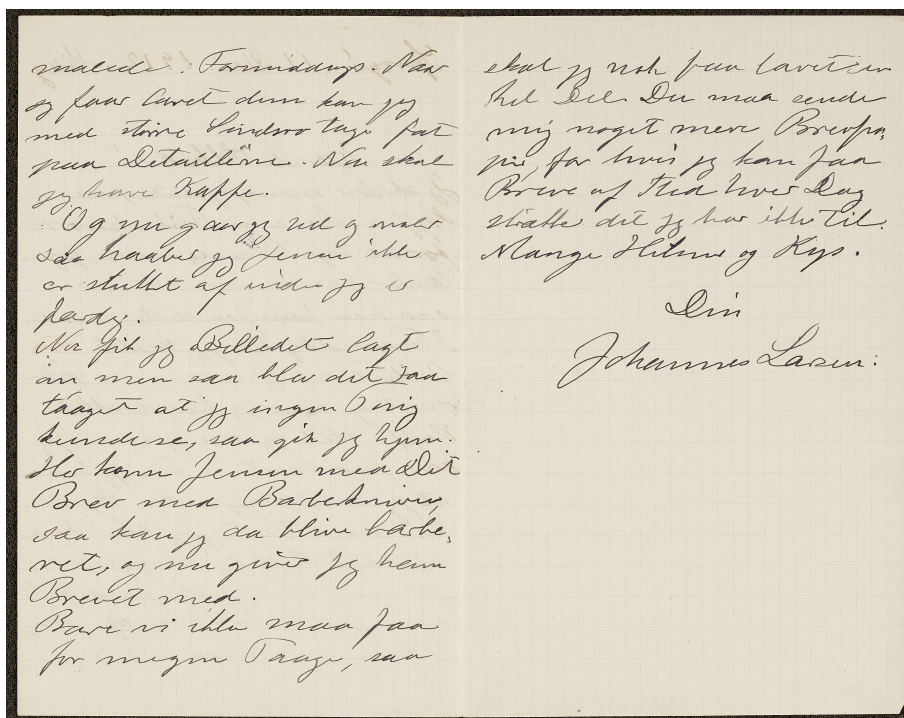 malede. Formiddags. Naar
jeg faar lavet dem kan jeg
med større Sindsro tage fat
paa Detaillerne. Nu skal
jeg have Kaffe.
Og nu gaar jeg ud og maler
saa haaber jeg Jensen ikke
er stukket af inden jeg er
færdig.
Nu fik jeg Billedet lagt
an men saa blev det saa
taaget at jeg ingen Ting
kunde se, saa gik jeg hjem.
Her kom Jensen med Dit
Brev med Barberkniven,
saa kan jeg da blive barbe,
ret, og nu giver jeg ham
Brevet med.
Bare vi ikke maa faa
for megen Taage, saa
skal jeg nok faa lavet en
hel Del. Du maa sende
mig noget mere Brevpa,
pir, for hvis jeg kan faa
Breve af Sted hver Dag
strække det jeg har ikke til.
Mange Hilsner og Kys.
Din
Johannes Larsen.